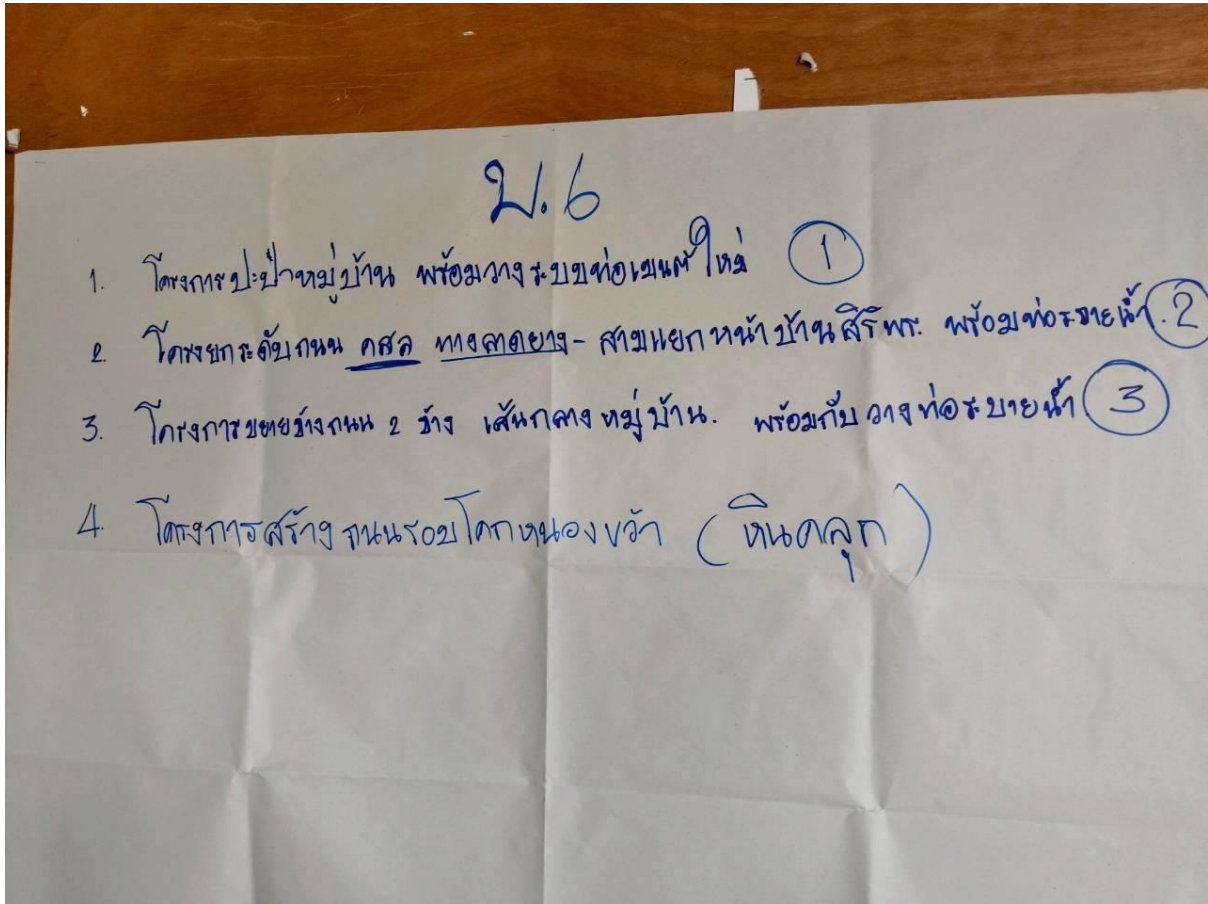 ม.6
1. โครงการปะปาหมู่บ้าน พร้อมวางระบบท่อเมนต์ใหม่ ①
2. โครงยกระดับถนน คสล ทางลาดยาง - สามแยกหน้าบ้านสิริพร. พร้อมท่อระบายน้ำ. ②
3. โครงการขยายข้างถนน 2 ข้าง เส้นกลางหมู่บ้าน. พร้อมกับวางท่อระบายน้ำ ③
4. โครงการสร้างถนนรอบโคกหนองขว้า (หินคลุก)